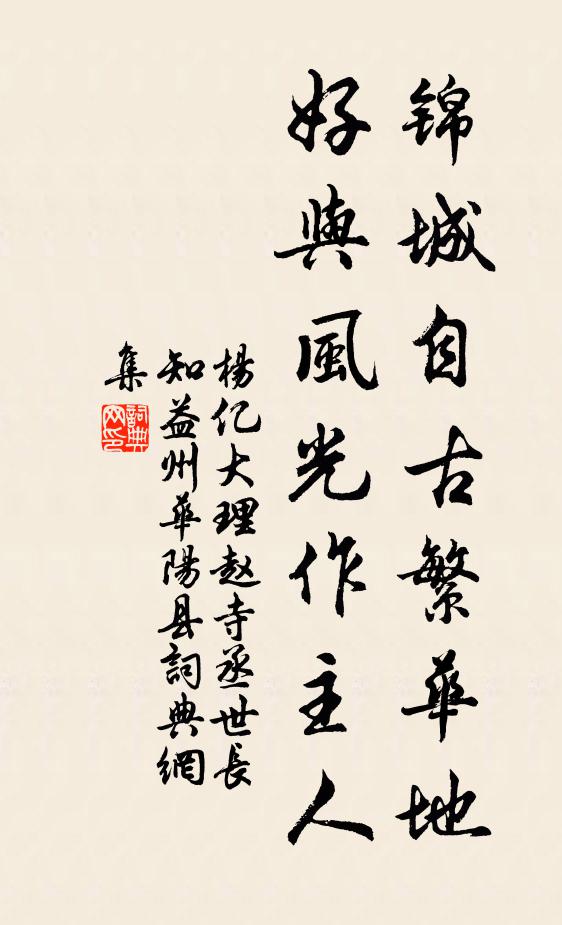 锦城自古繁華地
好與風光作主人
楊亿大理赵寺丞世長
知益州華陽县詞典網
集
詞典网印